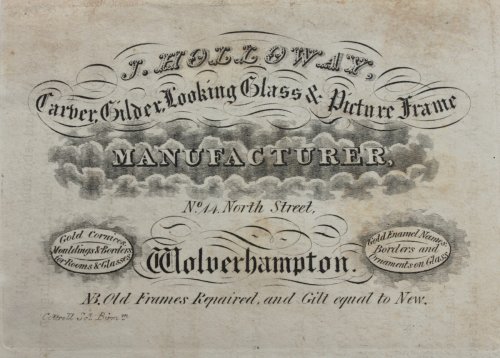 J. HOLLOWAY,
Carver, Gilder, Looking Glass & Picture Frame
MANUFACTURER,
No. 44. North Street,
Gold Cornices,
Mouldings & Borders
for Rooms & Glasses
Wolverhampton.
Gold Enamel Names,
Borders and
Ornaments on Glass
NB. Old Frames Repaired, and Gilt equal to New.
Cottrell Sct. Birm.